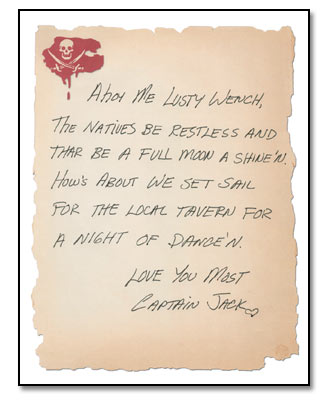 Ahoi Me Lusty Wench,
The Natives Be Restless and
Thar Be a Full Moon a Shine'n.
How's About We Set Sail
For the Local Tavern for
a Night of Dance'n.
Love You Most
Captain Jack